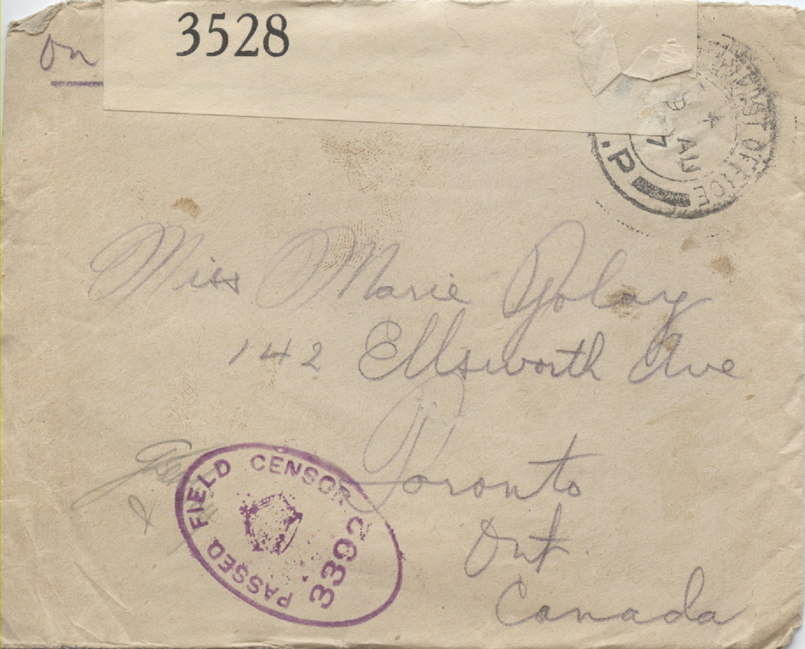 On
3528
POST OFFICE
.P
9 AU
7
Miss Marie Golay
142 Ellsworth Ave
Toronto
Ont
Canada
PASSED FIELD CENSOR
3392